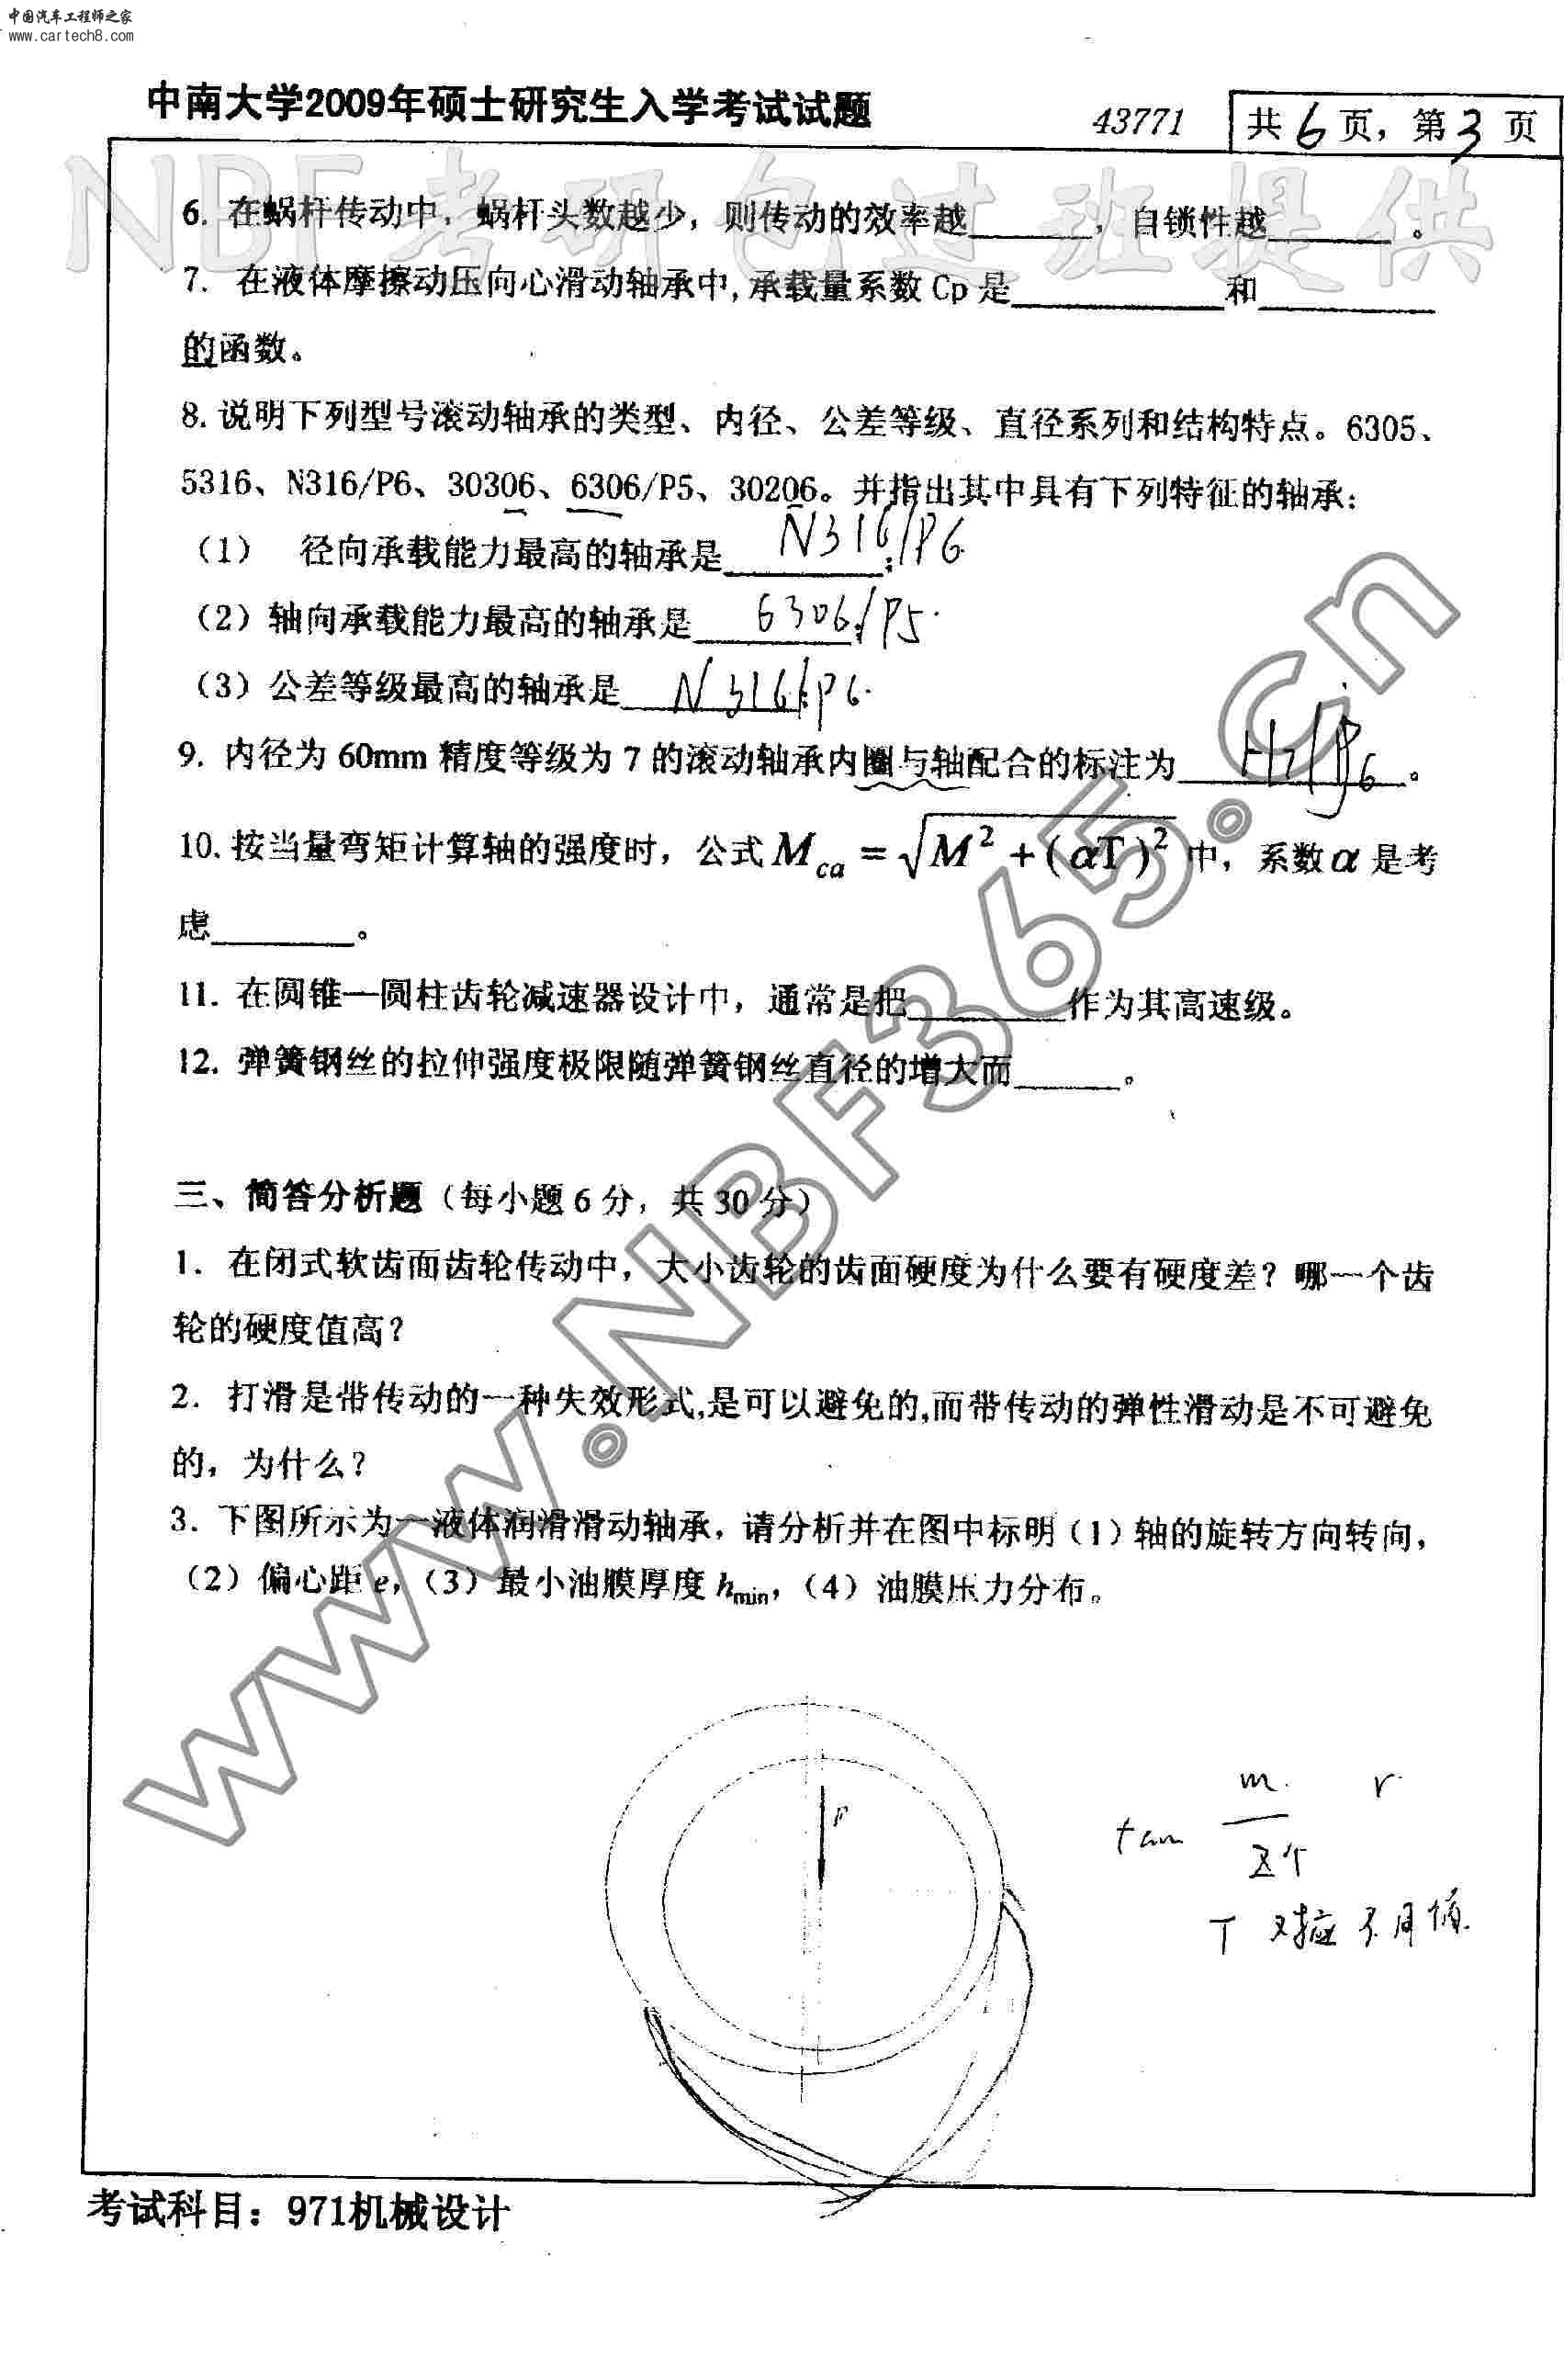 中国汽车工程师之家
www.cartech8.com
中南大学2009年硕士研究生入学考试试题
43771
共 6 页，第 3 页
NBF考研包过班提供
6. 在蜗杆传动中，蜗杆头数越少，则传动的效率越______，自锁性越______。
7. 在液体摩擦动压向心滑动轴承中,承载量系数 Cp 是__________和________
的函数。
8. 说明下列型号滚动轴承的类型、内径、公差等级、直径系列和结构特点。6305、
5316、N316/P6、30306、6306/P5、30206。并指出其中具有下列特征的轴承：
（1） 径向承载能力最高的轴承是 N316/P6 ；
（2）轴向承载能力最高的轴承是 6306/P5 ；
（3）公差等级最高的轴承是 N316/P6 ；
9. 内径为 60mm 精度等级为 7 的滚动轴承内圈与轴配合的标注为________。
10. 按当量弯矩计算轴的强度时，公式 M_ca = √(M² + (αT)²) 中，系数 α 是考
虑________。
11. 在圆锥—圆柱齿轮减速器设计中，通常是把________作为其高速级。
12. 弹簧钢丝的拉伸强度极限随弹簧钢丝直径的增大而______。
三、简答分析题（每小题 6 分，共 30 分）
1. 在闭式软齿面齿轮传动中，大小齿轮的齿面硬度为什么要有硬度差？哪一个齿
轮的硬度值高？
2. 打滑是带传动的一种失效形式,是可以避免的,而带传动的弹性滑动是不可避免
的，为什么？
3. 下图所示为一液体润滑滑动轴承，请分析并在图中标明（1）轴的旋转方向转向，
（2）偏心距 e，（3）最小油膜厚度 hmin，（4）油膜压力分布。
F
m r
tan
T 对应
www.NBF365.cn
考试科目：971机械设计